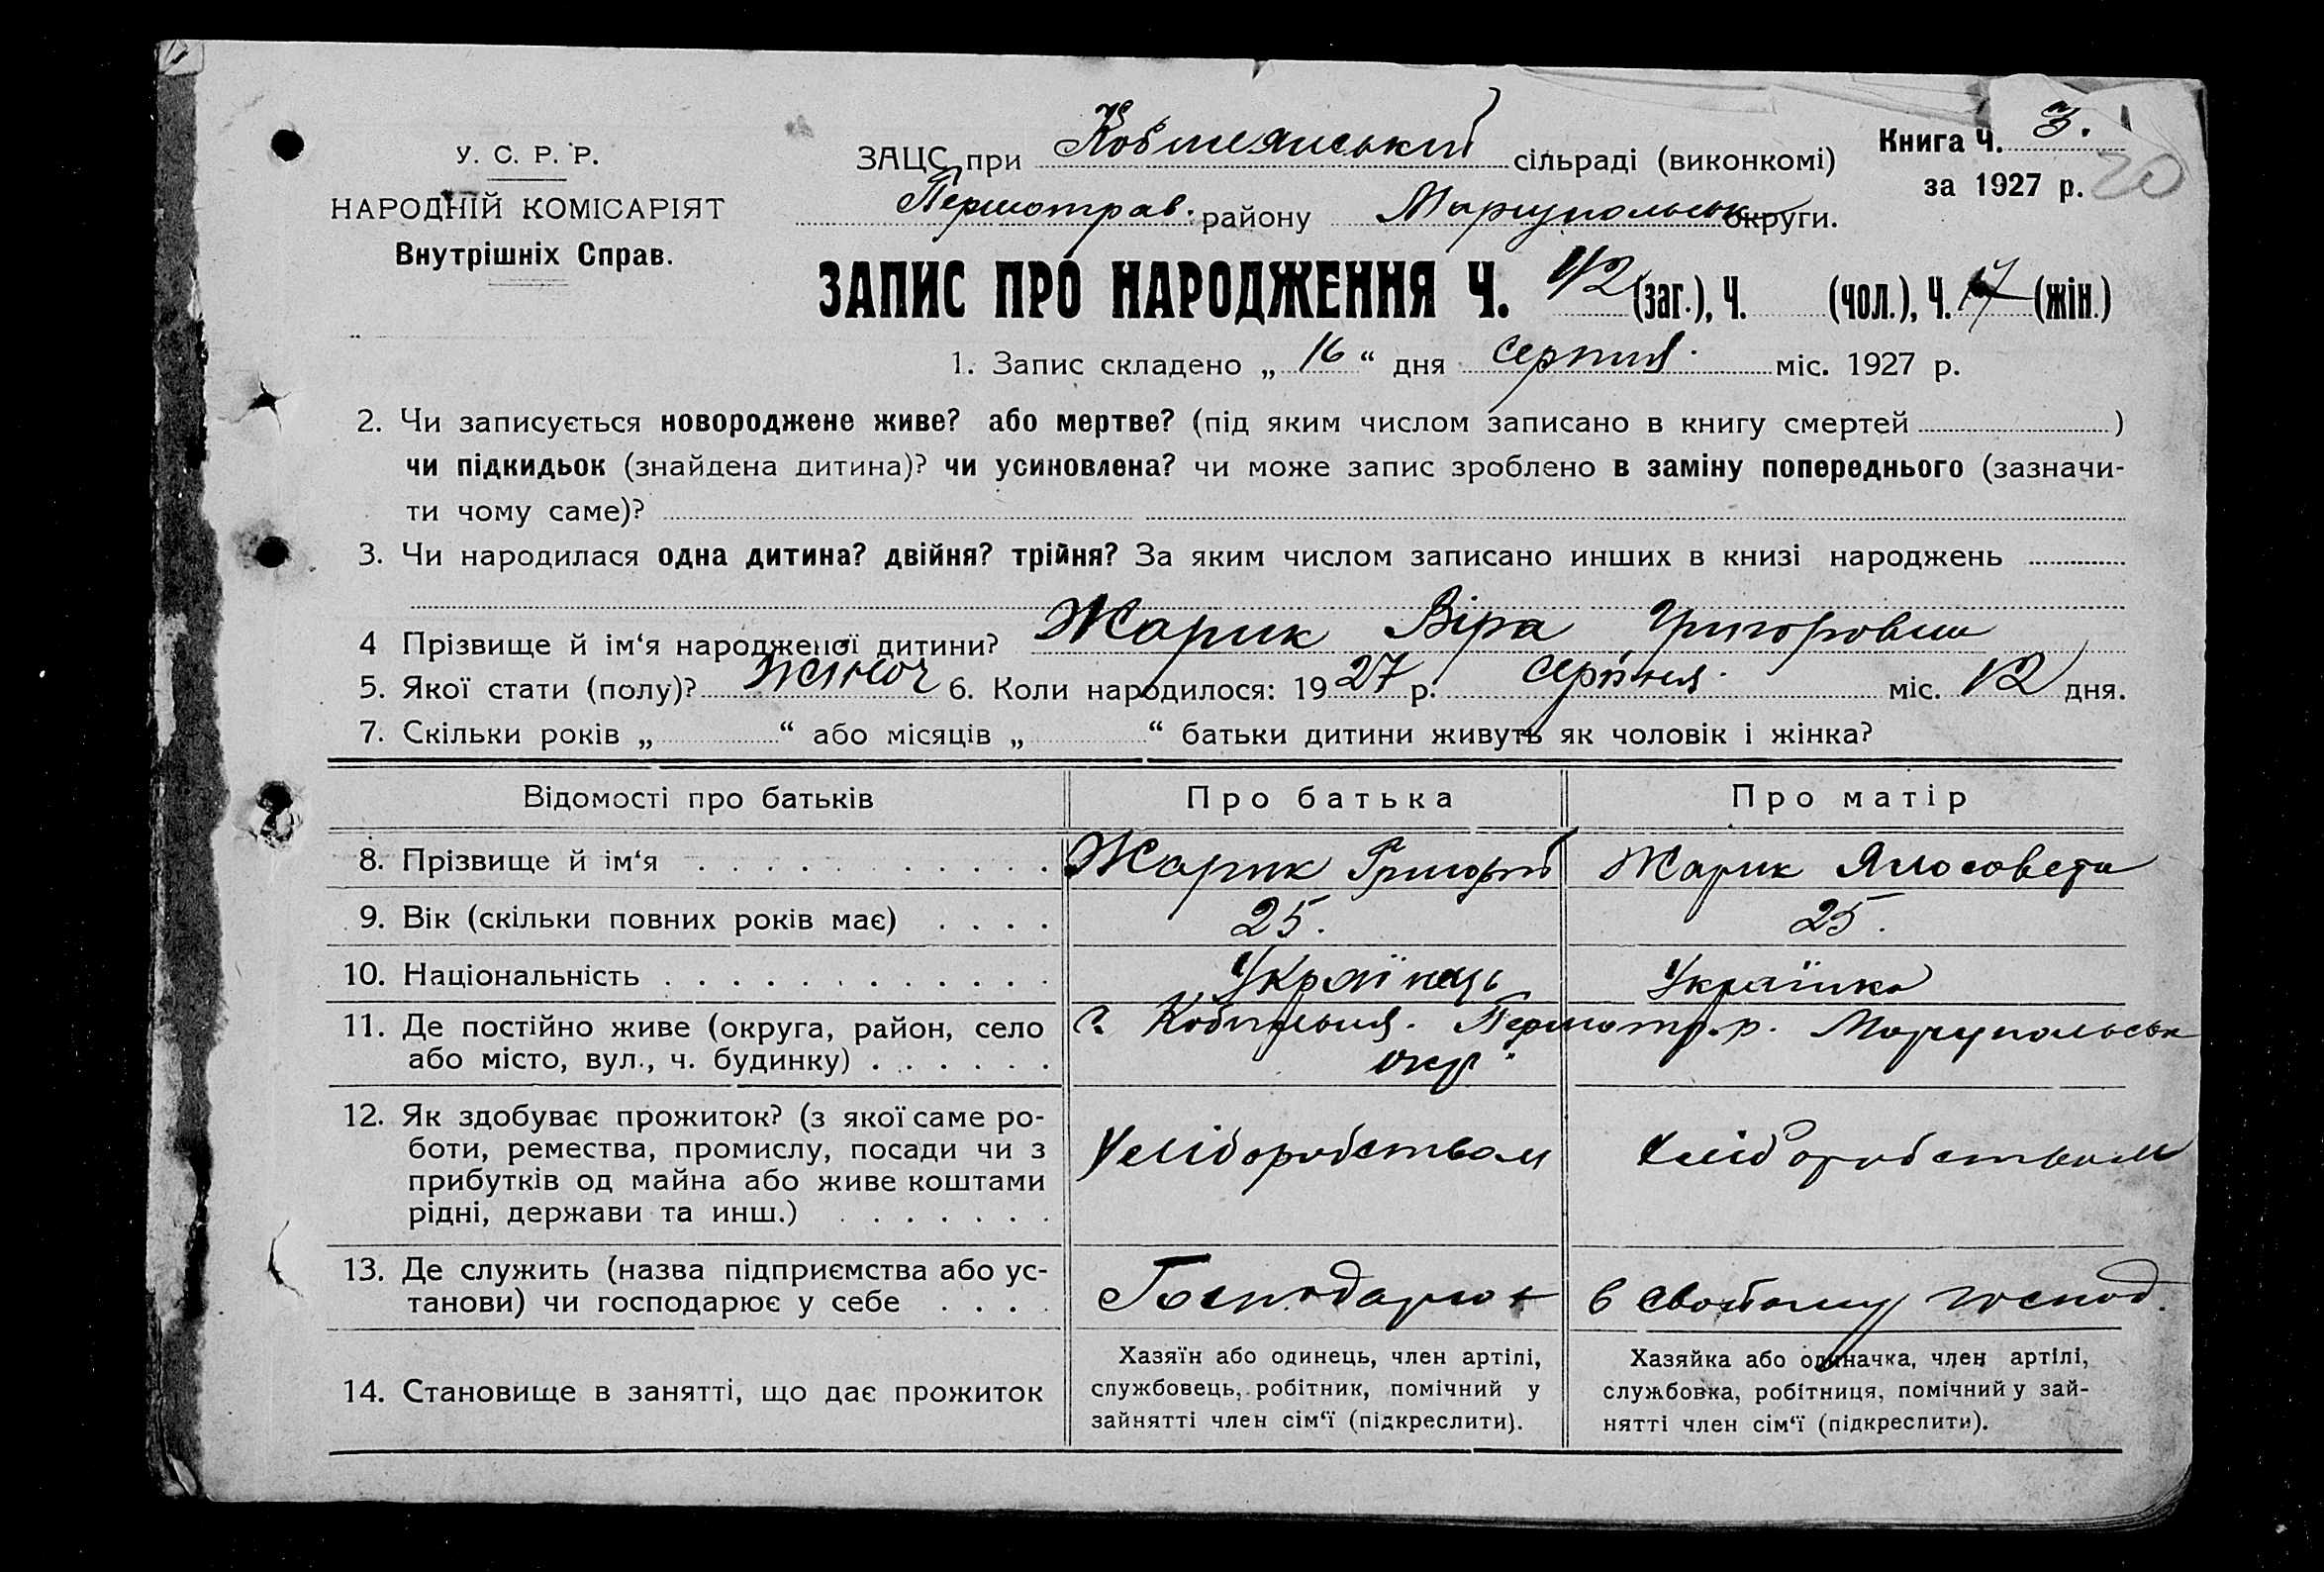 У. С. Р. Р.
НАРОДНІЙ КОМІСАРІЯТ
Внутрішніх Справ.
ЗАЦС при сільраді (виконкомі)
Першотрав. району Маріупольськ округи.
Книга Ч. 3.
за 1927 р. 20
ЗАПИС ПРО НАРОДЖЕННЯ Ч. 42 (заг.), Ч. (чол.), Ч. 17 (жін.)
1. Запис складено „ 16 “ дня серпня міс. 1927 р.
2. Чи записується новороджене живе? або мертве? (під яким числом записано в книгу смертей )
чи підкидьок (знайдена дитина)? чи усиновлена? чи може запис зроблено в заміну попереднього (зазначи-
ти чому саме)?
3. Чи народилася одна дитина? двійня? трійня? За яким числом записано инших в книзі народжень
4 Прізвище й ім‘я народженої дитини? Жарик Віра Григоровна
5. Якої стати (полу)? жіноч 6. Коли народилося: 1927 р. серпня міс. 12 дня.
7. Скільки років „ “ або місяців „ “ батьки дитини живуть як чоловік і жінка?
Відомості про батьків Про батька Про матір
8. Прізвище й ім‘я Жарик Григорій Жарик
9. Вік (скільки повних років має) 25. 25.
10. Національність Українець Українка
11. Де постійно живе (округа, район, село
або місто, вул., ч. будинку) Першотр. р. Маріупольськ
окр.
12. Як здобуває прожиток? (з якої саме ро-
боти, ремества, промислу, посади чи з
прибутків од майна або живе коштами
рідні, держави та инш.) Хліборобством Хліборобством
13. Де служить (назва підприємства або ус-
танови) чи господарює у себе Господарює в свойому господ.
14. Становище в занятті, що дає прожиток
Хазяїн або одинець, член артілі,
службовець, робітник, помічний у
зайнятті член сім‘ї (підкреслити).
Хазяйка або одиначка, член артілі,
службовка, робітниця, помічний у зай-
нятті член сім‘ї (підкреслити).